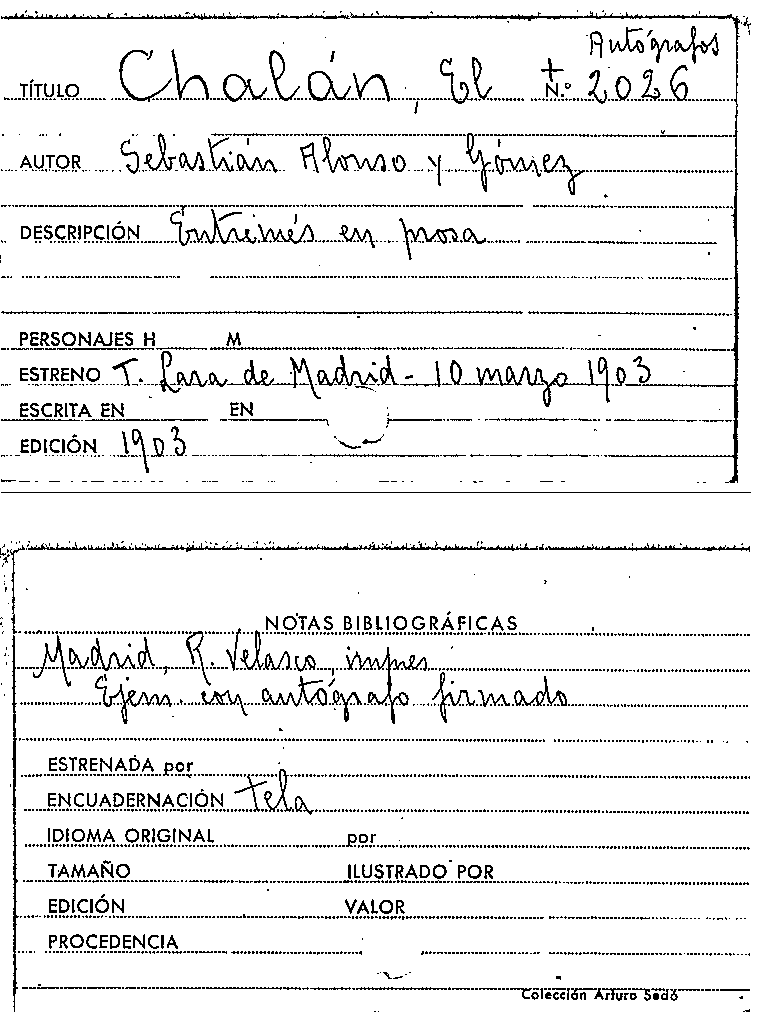 Autógrafos
TÍTULO Chalán, El + N.º 2026
AUTOR Sebastián Alonso y Gómez
DESCRIPCIÓN Entremés en prosa
PERSONAJES H M
ESTRENO T. Lara de Madrid - 10 marzo 1903
ESCRITA EN EN
EDICIÓN 1903
NOTAS BIBLIOGRÁFICAS
Madrid, R. Velasco, impres
Ejem. con autógrafo firmado
ESTRENADA por
ENCUADERNACIÓN tela
IDIOMA ORIGINAL por
TAMAÑO ILUSTRADO POR
EDICIÓN VALOR
PROCEDENCIA
Colección Arturo Sedó